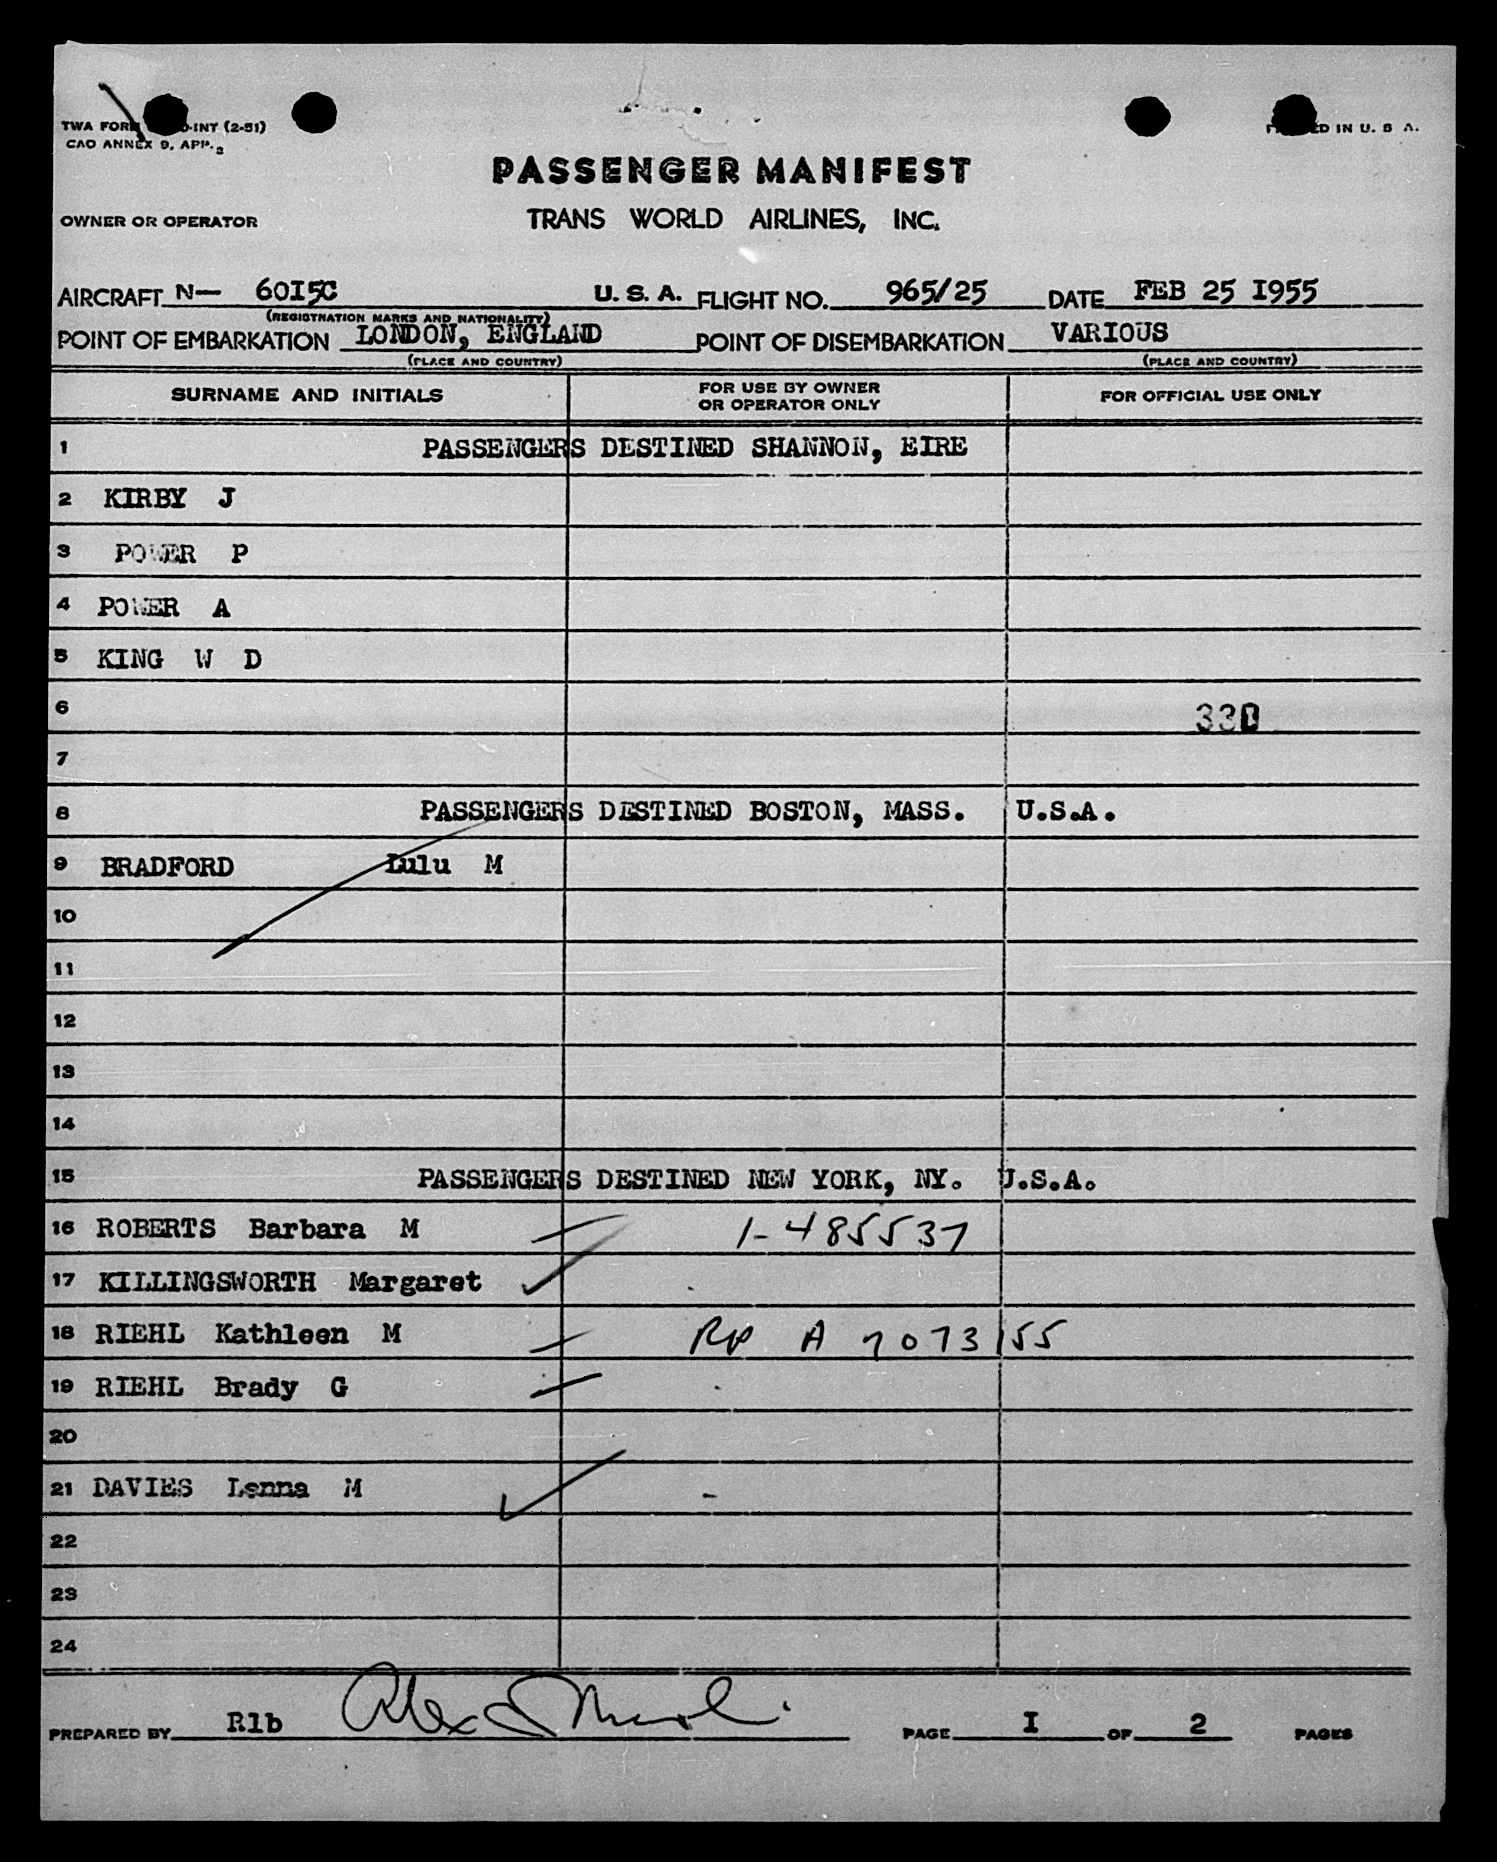 TWA FORM -INT (2-51)
CAO ANNEX 9, APP. 2
ED IN U. S A.
PASSENGER MANIFEST
OWNER OR OPERATOR TRANS WORLD AIRLINES, INC.
AIRCRAFT N- 60I5C U. S. A. FLIGHT NO. 965/25 DATE FEB 25 I955
(REGISTRATION MARKS AND NATIONALITY)
POINT OF EMBARKATION LONDON, ENGLAND POINT OF DISEMBARKATION VARIOUS
(PLACE AND COUNTRY) (PLACE AND COUNTRY)
SURNAME AND INITIALS FOR USE BY OWNER OR OPERATOR ONLY FOR OFFICIAL USE ONLY
1 PASSENGERS DESTINED SHANNON, EIRE
2 KIRBY J
3 POWER P
4 POWER A
5 KING W D
6 33
7
8 PASSENGERS DESTINED BOSTON, MASS. U.S.A.
9 BRADFORD Lulu M
10
11
12
13
14
15 PASSENGERS DESTINED NEW YORK, NY. U.S.A.
16 ROBERTS Barbara M 1-485537
17 KILLINGSWORTH Margaret
18 RIEHL Kathleen M RP A 7073155
19 RIEHL Brady G
20
21 DAVIES Lenna M
22
23
24
PREPARED BY Rlb Alex PAGE I OF 2 PAGES